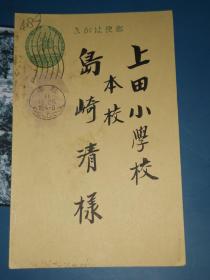 きがは便郵
上田小學校
本校
島崎清樣